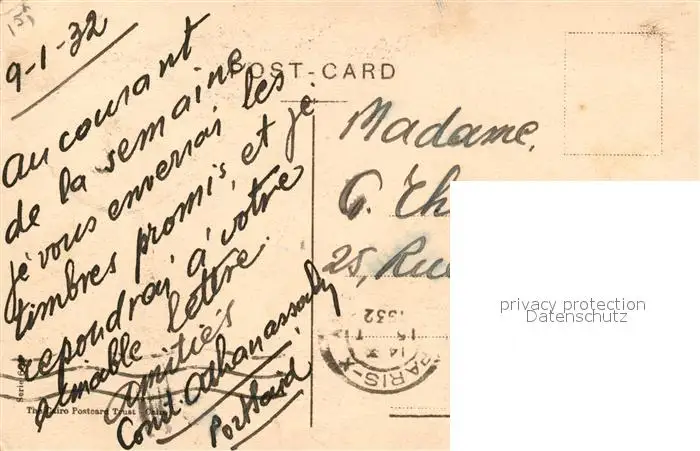 9-1-32
Au courant
de la semaine
je vous enverrai les
timbres promis, et je
repondrai à votre
aimable lettre.
amitiés
Const Athanassouly
Port Said
POST-CARD
Madame,
G. Th
25, Rue
PARIS-X
1932
Serie
The Cairo Postcard Trust - Cairo
privacy protection
Datenschutz